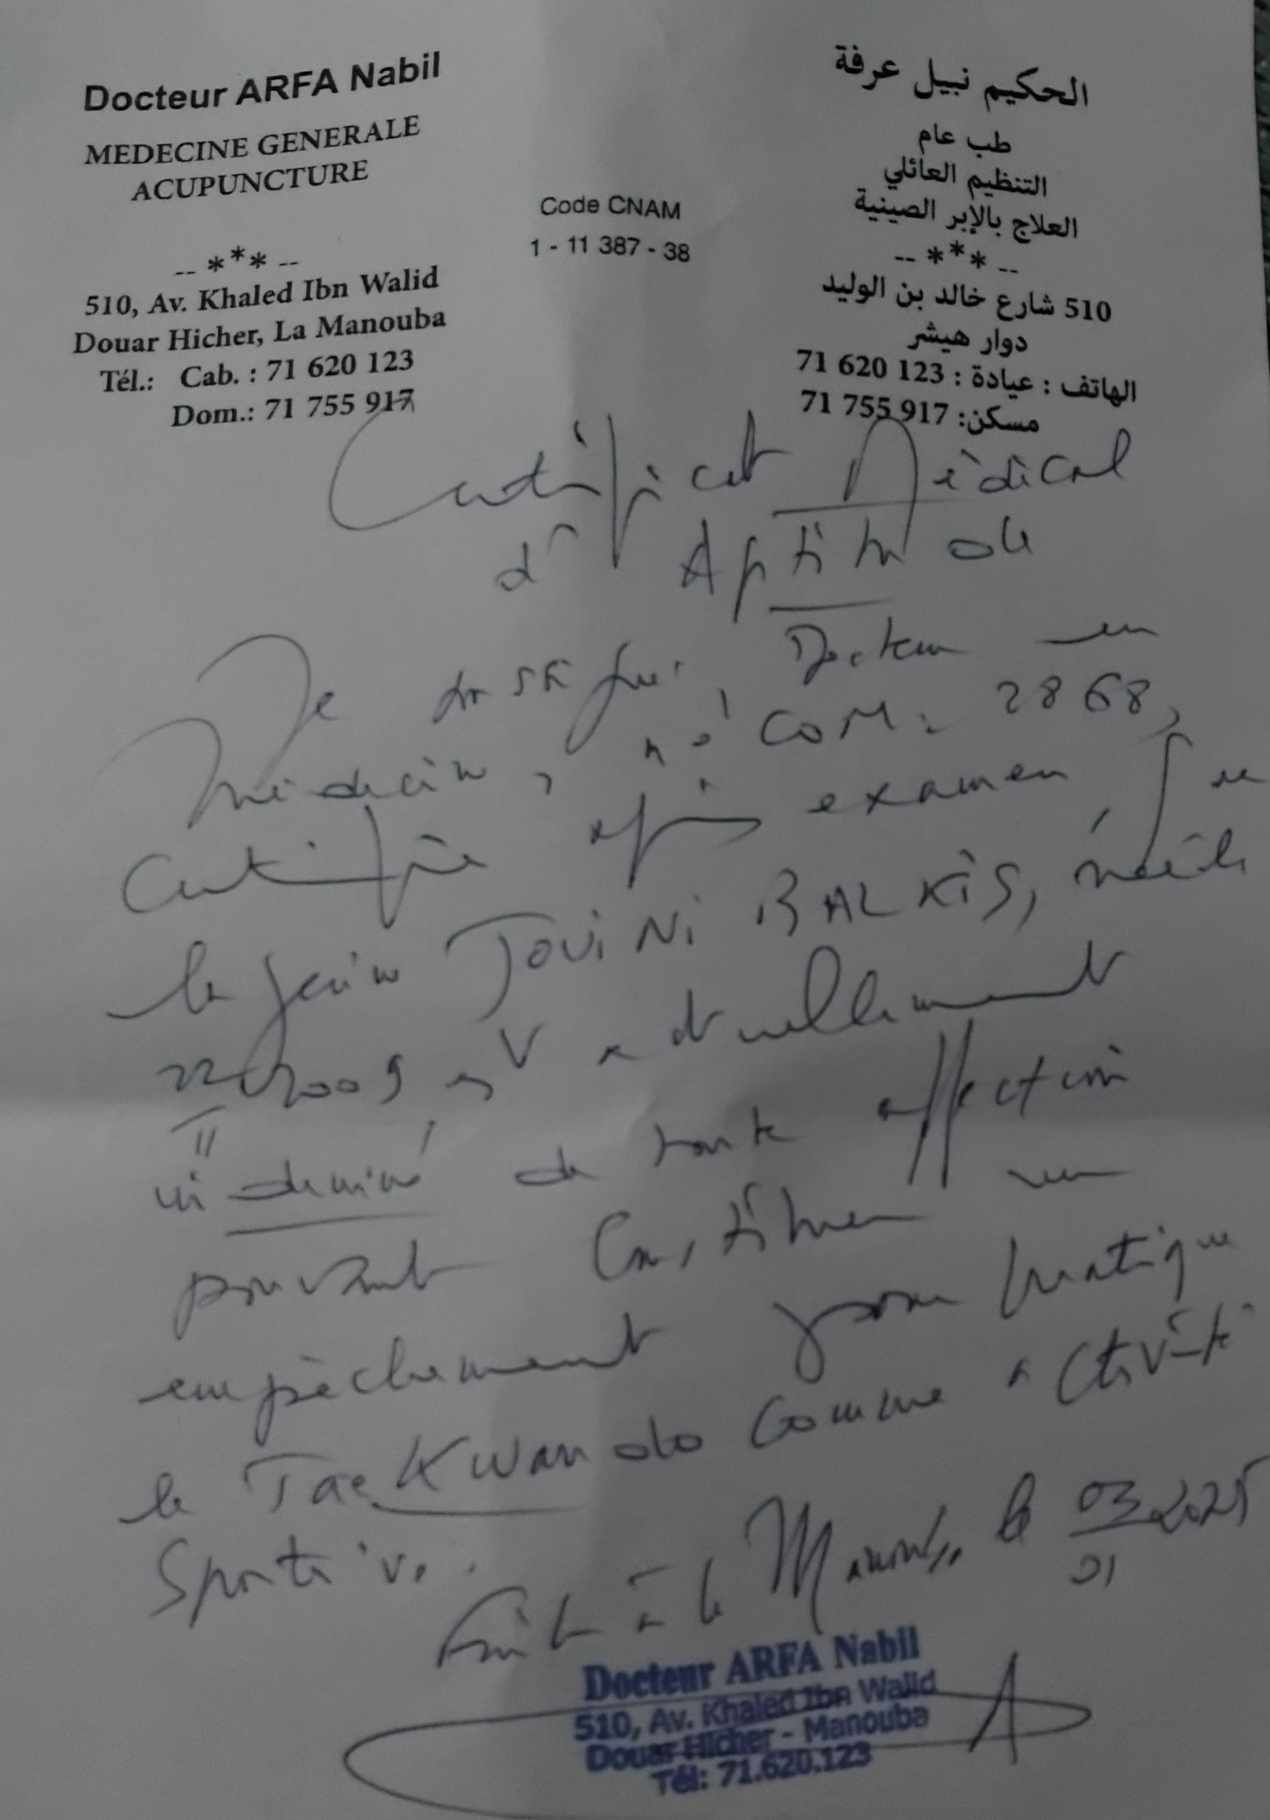 Docteur ARFA Nabil
MEDECINE GENERALE
ACUPUNCTURE
-- *** --
510, Av. Khaled Ibn Walid
Douar Hicher, La Manouba
Tél.: Cab. : 71 620 123
Dom.: 71 755 917
Code CNAM
1 - 11 387 - 38
الحكيم نبيل عرفة
طب عام
التنظيم العائلي
العلاج بالإبر الصينية
-- *** --
510 شارع خالد بن الوليد
دوار هيشر
الهاتف : عيادة : 123 620 71
مسكن: 917 755 71
Certificat Médical
d'Aptitude
Je soussigné, Docteur en
Médecine, n° COM: 2868,
certifie après examen que
le jeune JOUINI BALKIS, née le
2009 est actuellement
indemne de toute affection
pouvant constituer un
empêchement pour pratiquer
le TaeKwando comme activité
Sportive.
Fait à la Manouba, le 03 01 2025
Docteur ARFA Nabil
510, Av. Khaled Ibn Walid
Douar Hicher - Manouba
Tél: 71.620.123